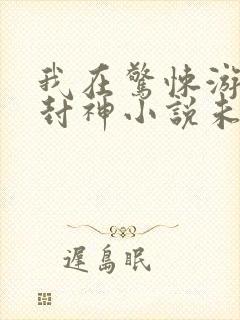 我在驚悚游
封神小說未
遲島眠